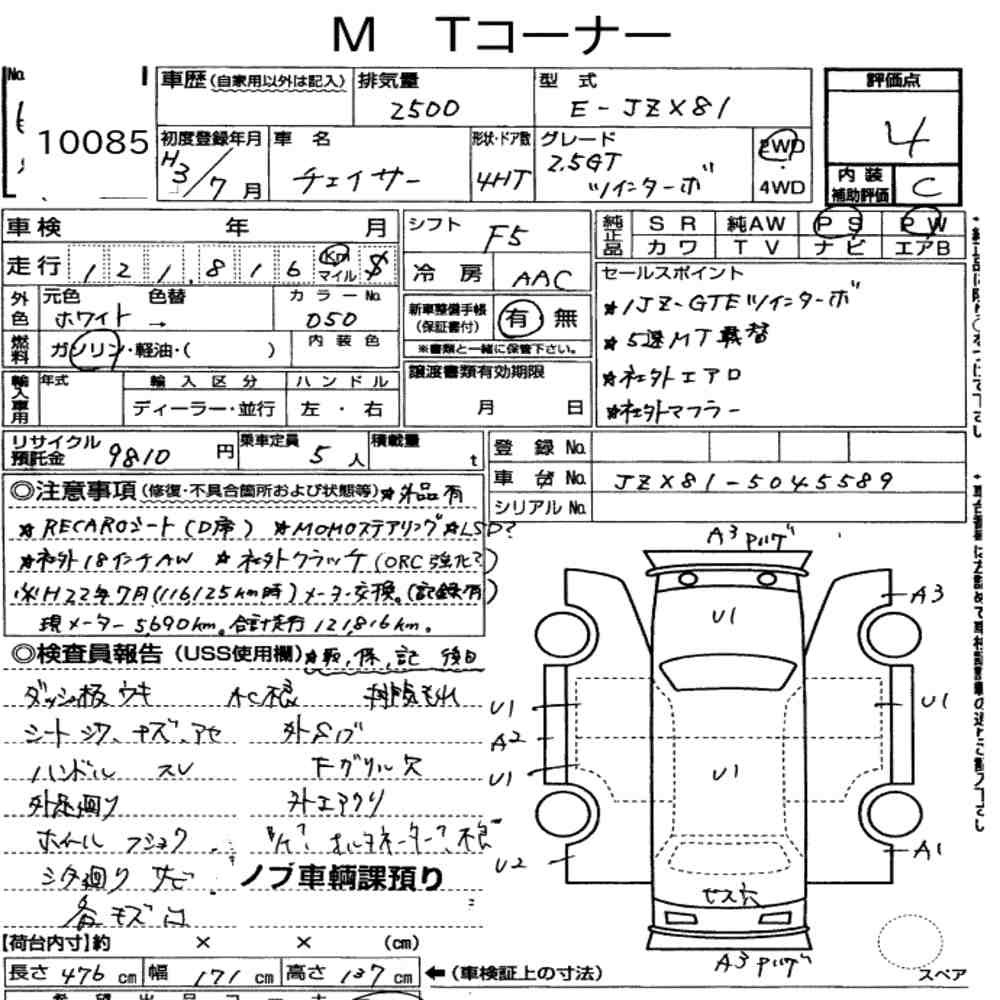 M Tコーナー
No. 車歴 (自家用以外は記入) 排気量 型 式 評価点
2500 E-JZX81 4
10085
初度登録年月 車 名 形状・ドア数 グレード 2WD
H3/7月 チェイサー 4HT 2.5GT ツインターボ 4WD 内装補助評価 C
車検 年 月 シフト F5 純正品 SR 純AW PS PW
カワ TV ナビ エアB
走行 121,816 Km マイル $ 冷房 AAC セールスポイント
外色 元色 色替 カラーNo. 新車整備手帳 (保証書付) 有 無 ★1JZ-GTEツインターボ
ホワイト → 050 ★5速MT載替
燃料 ガソリン・軽油・( ) 内装色 ※書類と一緒に保管下さい。
輸入車用 年式 輸入区分 ハンドル 譲渡書類有効期限 ★社外エアロ
ディーラー・並行 左・右 月 日 ★社外マフラー
リサイクル預託金 9810 円 乗車定員 5 人 積載量 t 登録No.
車台No. JZX81-5045589
シリアルNo.
◎注意事項 (修復・不具合箇所および状態等) ★外品有
★RECAROシート(D席) ★MOMOステアリング ★LSD?
★社外18インチAW ★社外クラッチ(ORC強化?)
※H22年7月(116,125km時)メーター交換。(記録有)
現メーター5,690km。合計走行121,816km。
◎検査員報告 (USS使用欄) ★取,保,記 後日
ダッシュ板ウキ AC根 排気もれ
シート シワ、キズ、アセ
ハンドル スレ 下グリル欠
外足廻り 外エアクリ
ホイール フショク
シタ廻り サビ ノブ車輌課預り
各キズ凹
【荷台内寸】約 × × (cm)
長さ 476 cm 幅 171 cm 高さ 137 cm ←(車検証上の寸法)
A3
U1
A3
U1
U1
A2
U1
U1
U2
A1
A3
スペア